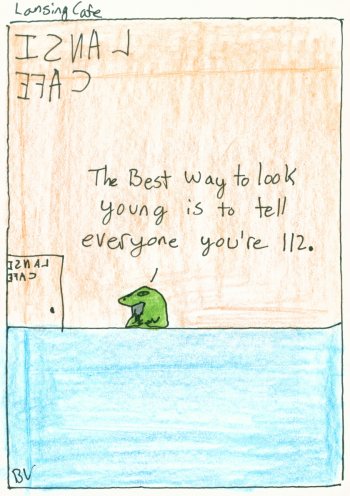 Lansing Cafe
LANSI
CAFE
The Best way to look
young is to tell
everyone you're 112.
LANSI
CAFE
BV